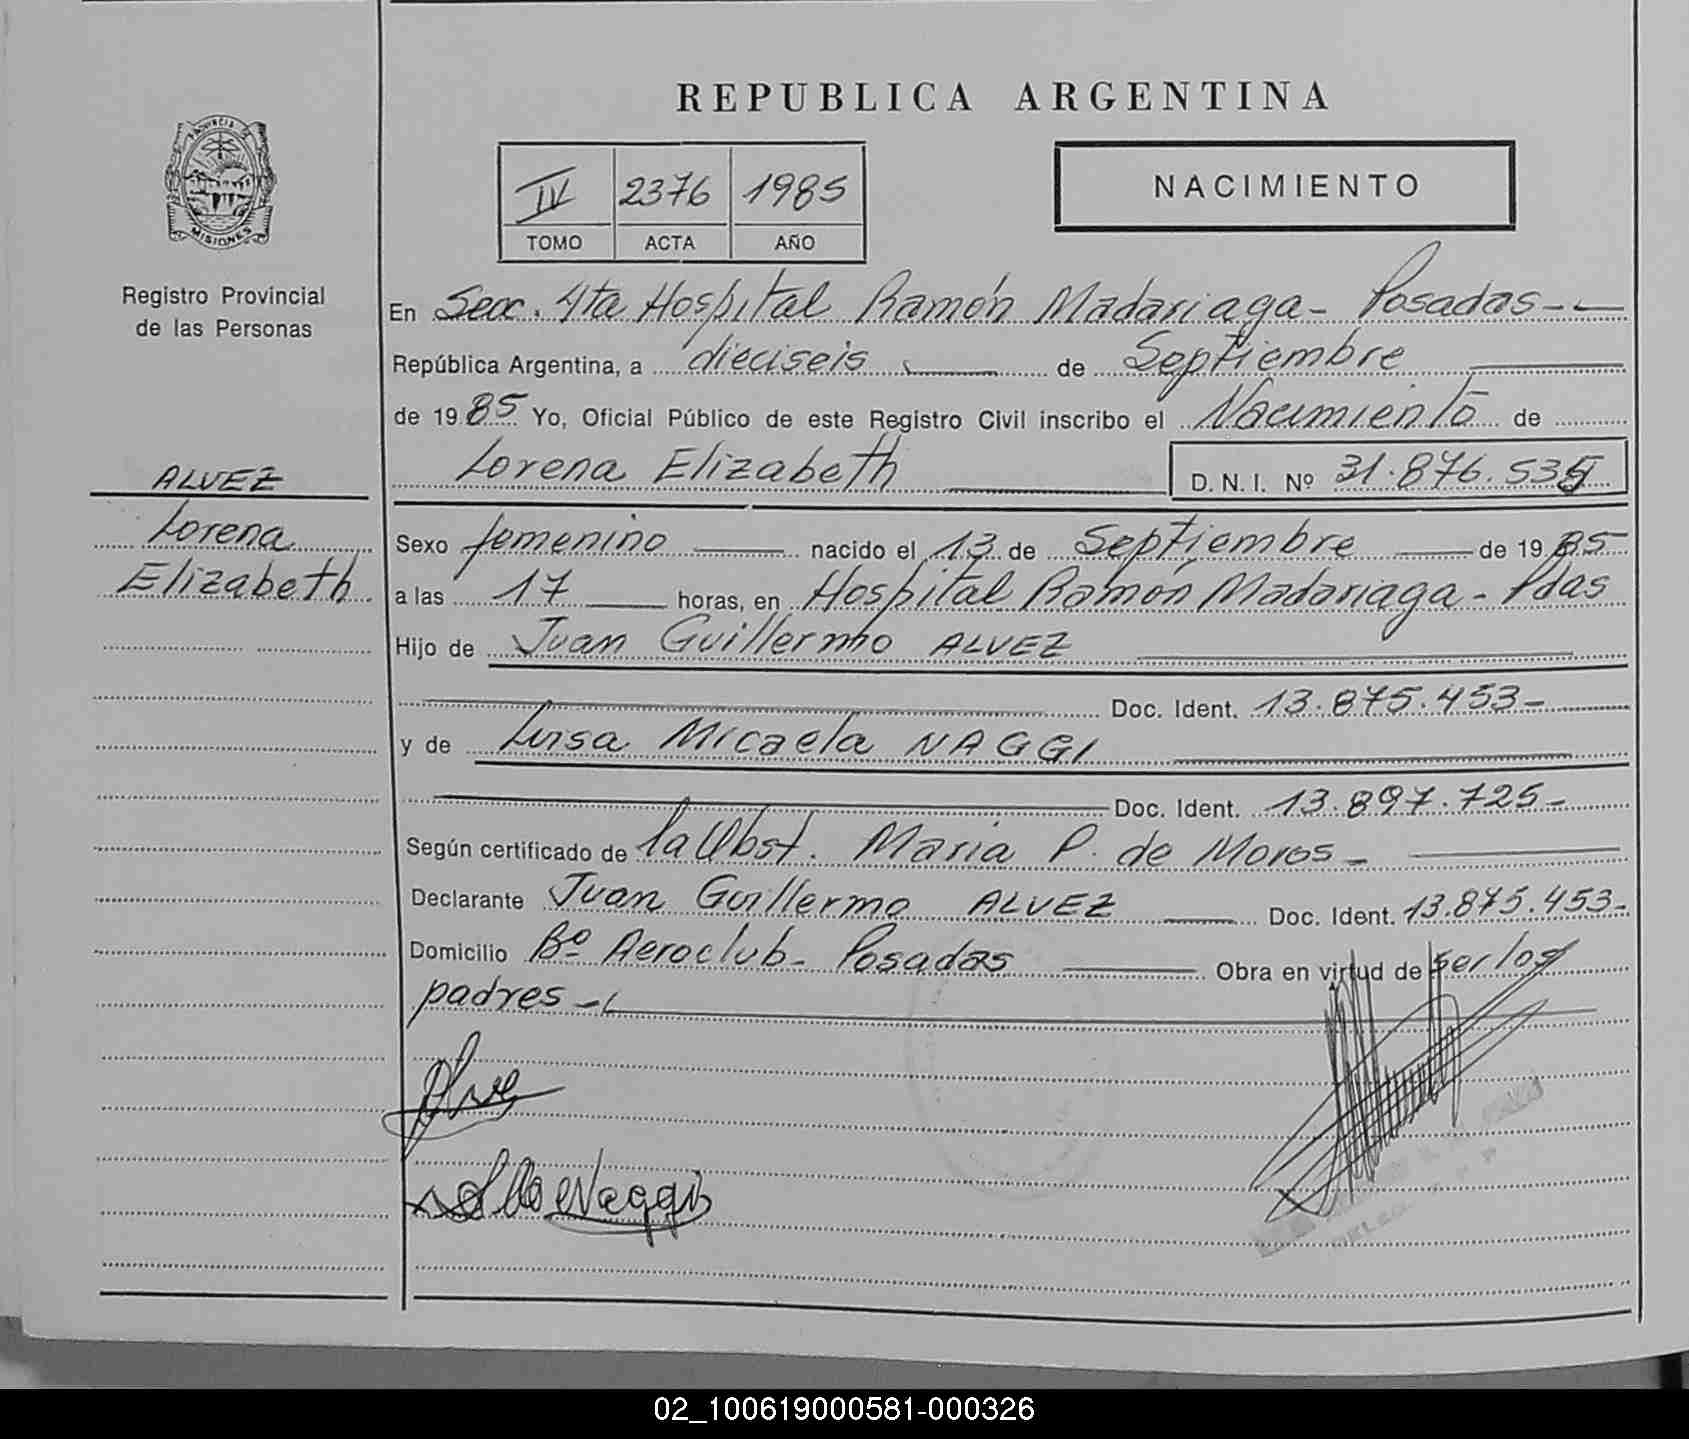 REPUBLICA ARGENTINA
PROVINCIA DE
MISIONES
Registro Provincial
de las Personas
IV 2376 1985
TOMO ACTA AÑO
NACIMIENTO
En Secc. 4ta Hospital Ramón Madariaga - Posadas -
República Argentina, a dieciseis de Septiembre
de 1985 Yo, Oficial Público de este Registro Civil inscribo el Nacimiento de
Lorena Elizabeth D. N. I. Nº 31.876.535
ALVEZ
Lorena
Elizabeth
Sexo femenino nacido el 13 de Septiembre de 1985
a las 17 horas, en Hospital Ramón Madariaga - Pdas
Hijo de Juan Guillermo ALVEZ
Doc. Ident. 13.875.453-
y de Luisa Micaela NAGGI
Doc. Ident. 13.897.725-
Según certificado de la Obst. Maria P. de Moros -
Declarante Juan Guillermo ALVEZ Doc. Ident. 13.875.453-
Domicilio Bº Aeroclub - Posadas Obra en virtud de ser los
padres -
Naggi
02_100619000581-000326